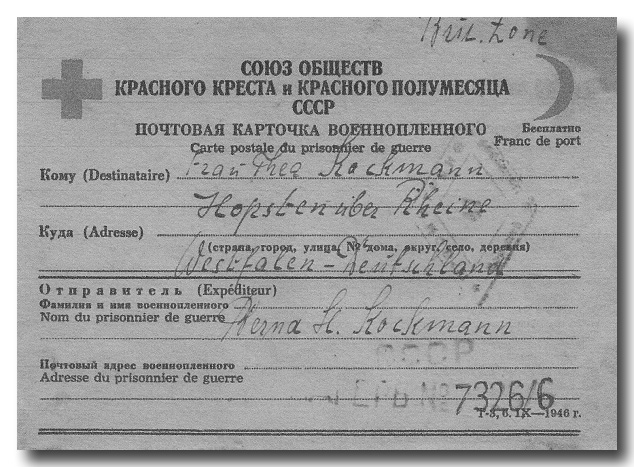 Brit. Zone
СОЮЗ ОБЩЕСТВ
КРАСНОГО КРЕСТА и КРАСНОГО ПОЛУМЕСЯЦА
СССР
ПОЧТОВАЯ КАРТОЧКА ВОЕННОПЛЕННОГО
Carte postale du prisonnier de guerre
Бесплатно
Franc de port
Кому (Destinataire) Frau Thea Kockmann
Hopsten über Rheine
Куда (Adresse)
(страна, город, улица, № дома, округ, село, деревня)
Westfalen - Deutschland
Отправитель (Expéditeur)
Фамилия и имя военнопленного
Nom du prisonnier de guerre H. Kockmann
СССР
Почтовый адрес военнопленного
Adresse du prisonnier de guerre
№ 7326/6
Т-3, 6. IX—1946 г.